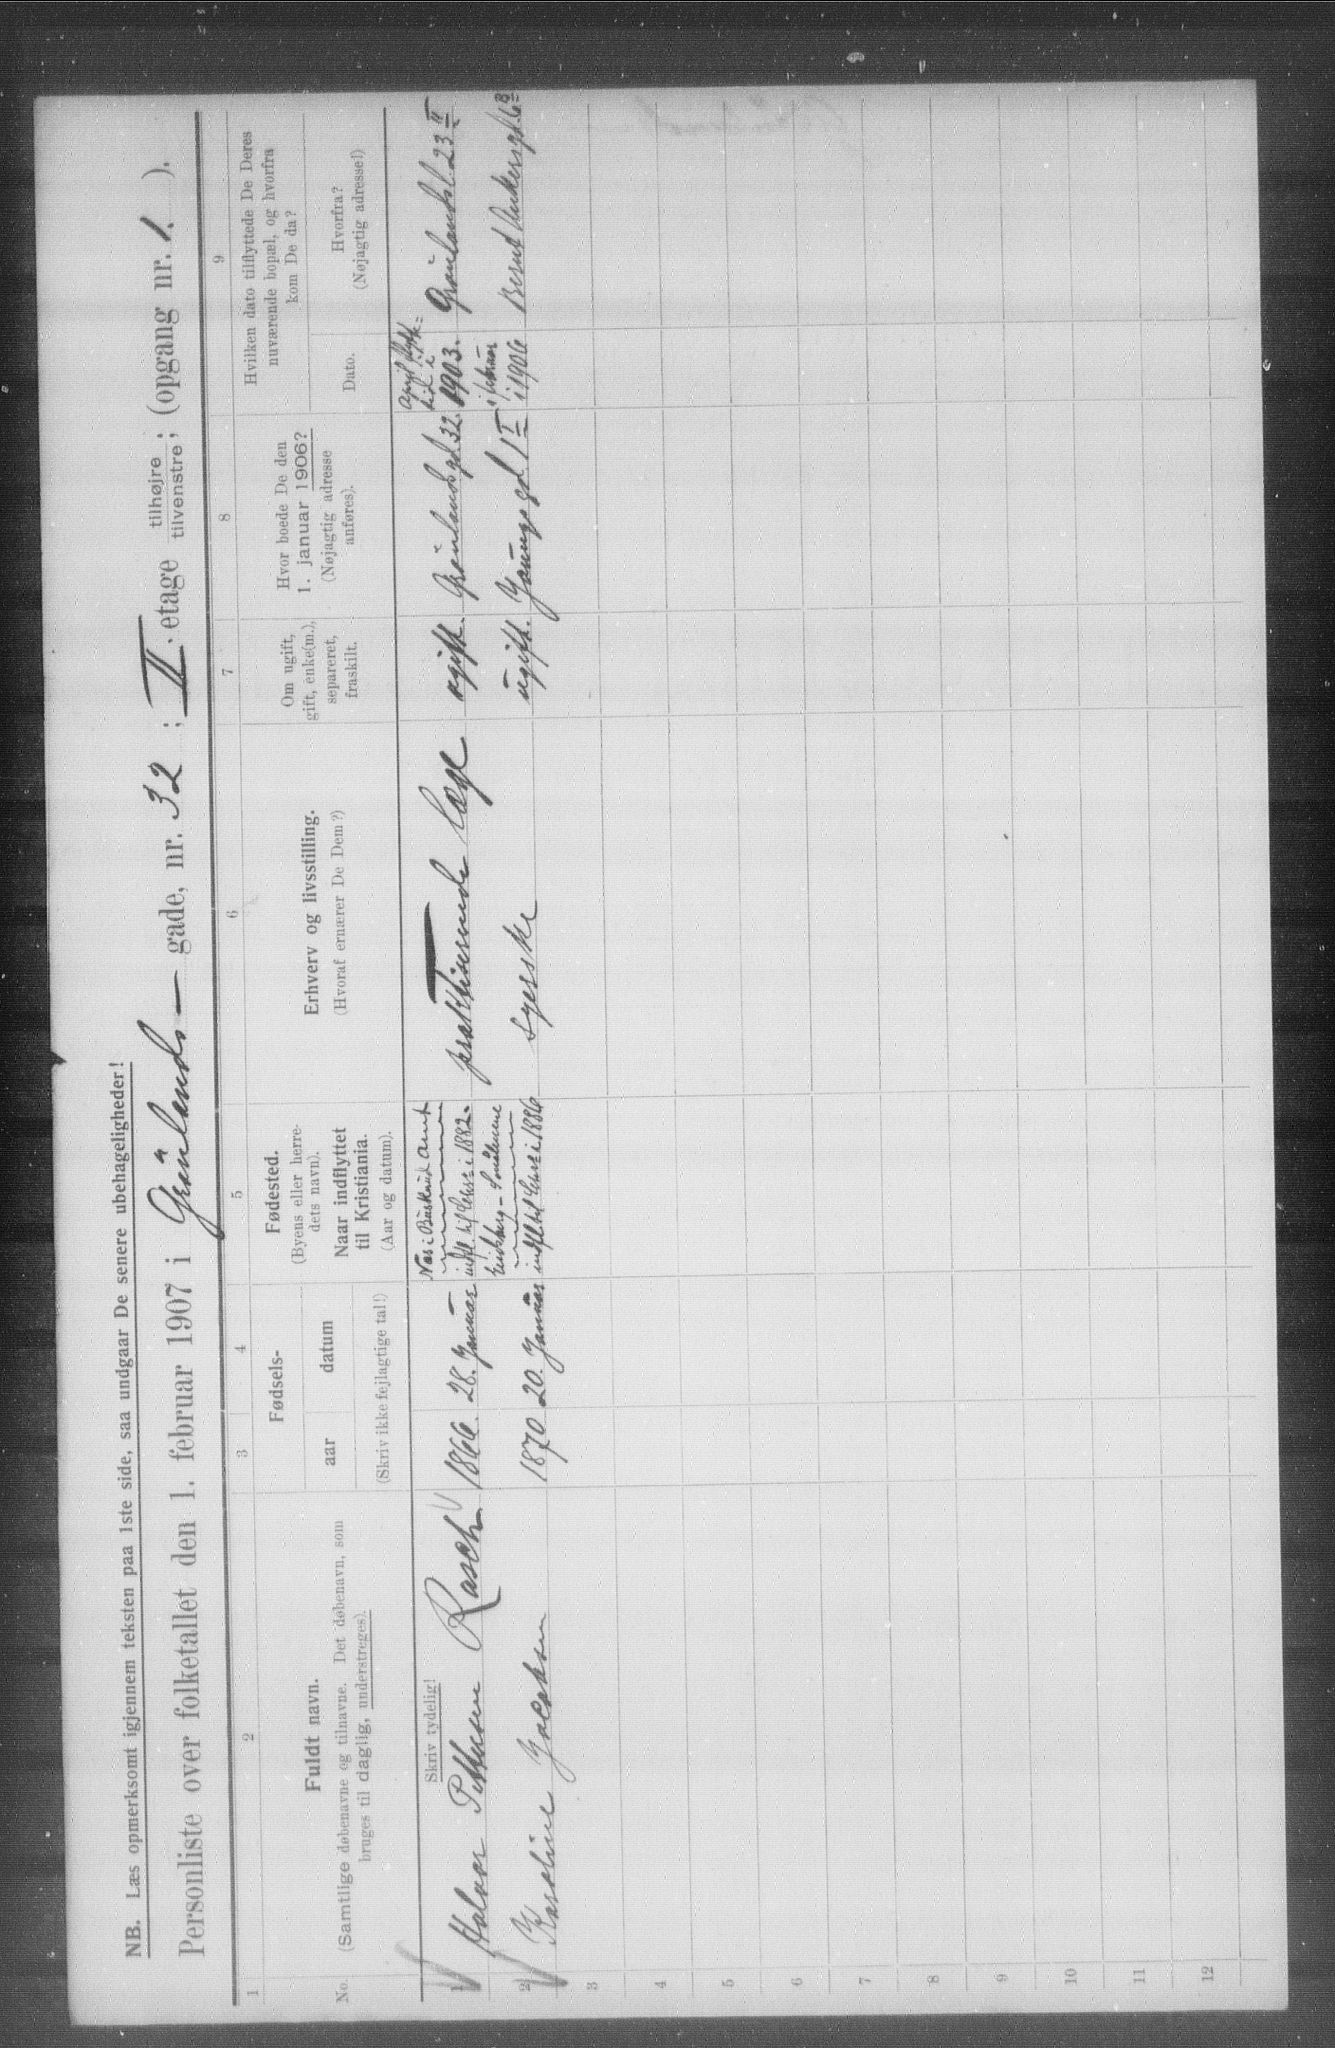 NB. Læs opmerksomt igjennem teksten paa 1ste side, saa undgaar De senere ubehageligheder!
Personliste over folketallet den 1. februar 1907 i Grønlands- gade, nr. 32; II. etage tilhøjre tilvenstre; (opgang nr. 1.).
1 2 3 4 5 6 7 8 9
No.
Fuldt navn.
(Samtlige døbenavne og tilnavne. Det døbenavn, som
bruges til daglig, understreges).
Fødsels-
aar datum
(Skriv ikke fejlagtige tal!)
Fødested.
(Byens eller herre-
dets navn).
Naar indflyttet
til Kristiania.
(Aar og datum).
Erhverv og livsstilling.
(Hvoraf ernærer De Dem?)
Om ugift,
gift, enke(m.),
separeret,
fraskilt.
Hvor boede De den
1. januar 1906?
(Nøjagtig adresse
anføres).
Hvilken dato tilflyttede De Deres
nuværende bopæl, og hvorfra
kom De da?
Dato.
Hvorfra?
(Nøjagtig adresse!)
Skriv tydelig!
1 Halvor Pettersen Rasch 1866. 28. Januar Næs i Buskerud Amt i 1882. praktiserende læge ugift. Grønlandsgd 32. April 1903. Grønlandsl. 23 II
2 Karoline Jacobsen 1870 20. Januar Eidsberg - Smålenene i 1886 syerske ugift. Youngsgd. 1 I i februar 1906 Bernt Ankersgd. 6 B
3
4
5
6
7
8
9
10
11
12